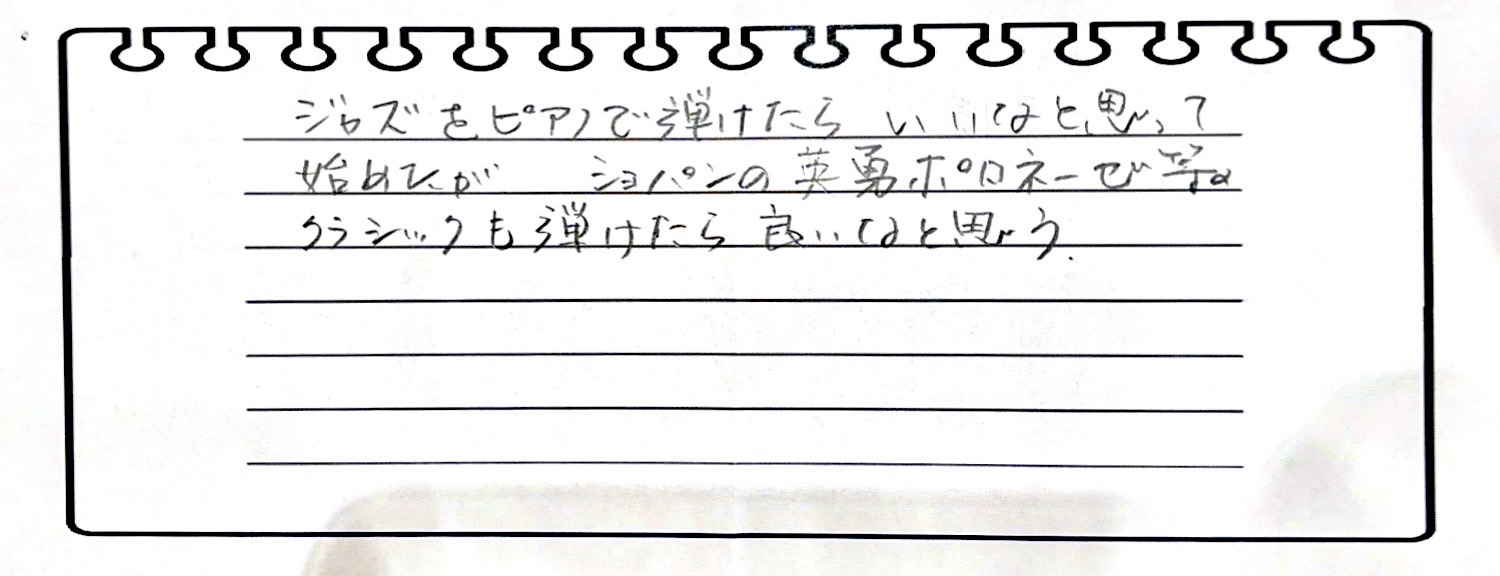 ジャズをピアノで弾けたら いいなと思って
始めたが ショパンの英勇ポロネーゼ等の
クラシックも弾けたら良いなと思う.